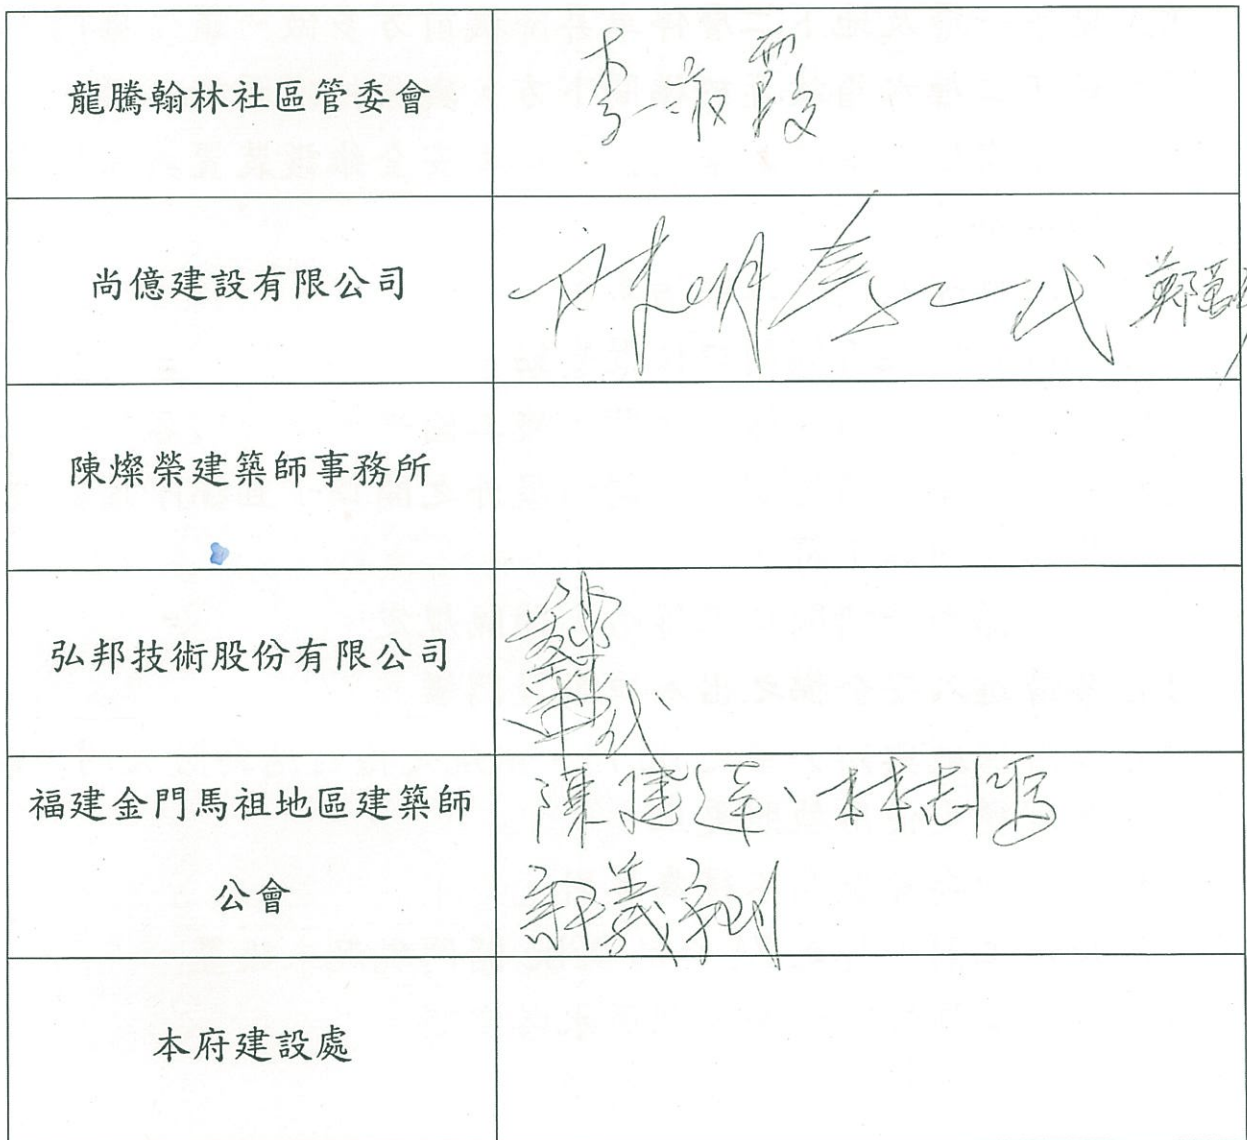 龍騰翰林社區管委會
李淑霞
尚億建設有限公司
陳明 代 鄭
陳燦榮建築師事務所
弘邦技術股份有限公司
福建金門馬祖地區建築師
陳建達、林志
公會
許義
本府建設處